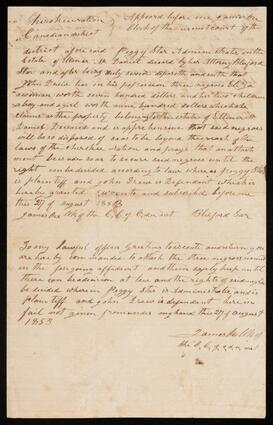 Cherokee nation } Appeared before me James
Canadian district } Clerk of the circuit court of the
district aforesaid Peggy Star Administrator on the
Estate of Ellinor McDaniel deceased by her Attorney Buford
Star and after being duly sworn deposeth and saith that
John Drew has in his possession three negroes Eliza
a woman worth five hundred dollars and her two children
a boy and a girl worth nine hundred dollars which she
claims as the property belonging to the estate of Ellinor Mc
Daniel Deceased and is apprehensive that said negroes
will be so disposed of as to be beyond the reach of the
laws of the Cherokee Nation and prays that an attach
ment be issued so as to secure said negroes until the
right can be decided according to law whereas Peggy Star
is plaintiff and John Drew is Defendant which is
hereby granted sworn to and subscribed before me
this 27 of August 1853
James Clk of the C. C. of C. district Buford Star
To any lawful officer greeting to execute and return you
are hereby commanded to attach the three negroes named
in the foregoing affidavit and them safely keep until
there can be a decision had and the right of said negroes
be decided wherein Peggy Star is Administrator and is
plaintiff and John Drew is defendant herein
fail not given from under my hand this 27 of August
1853
James Clk of
the C. C. of C. district